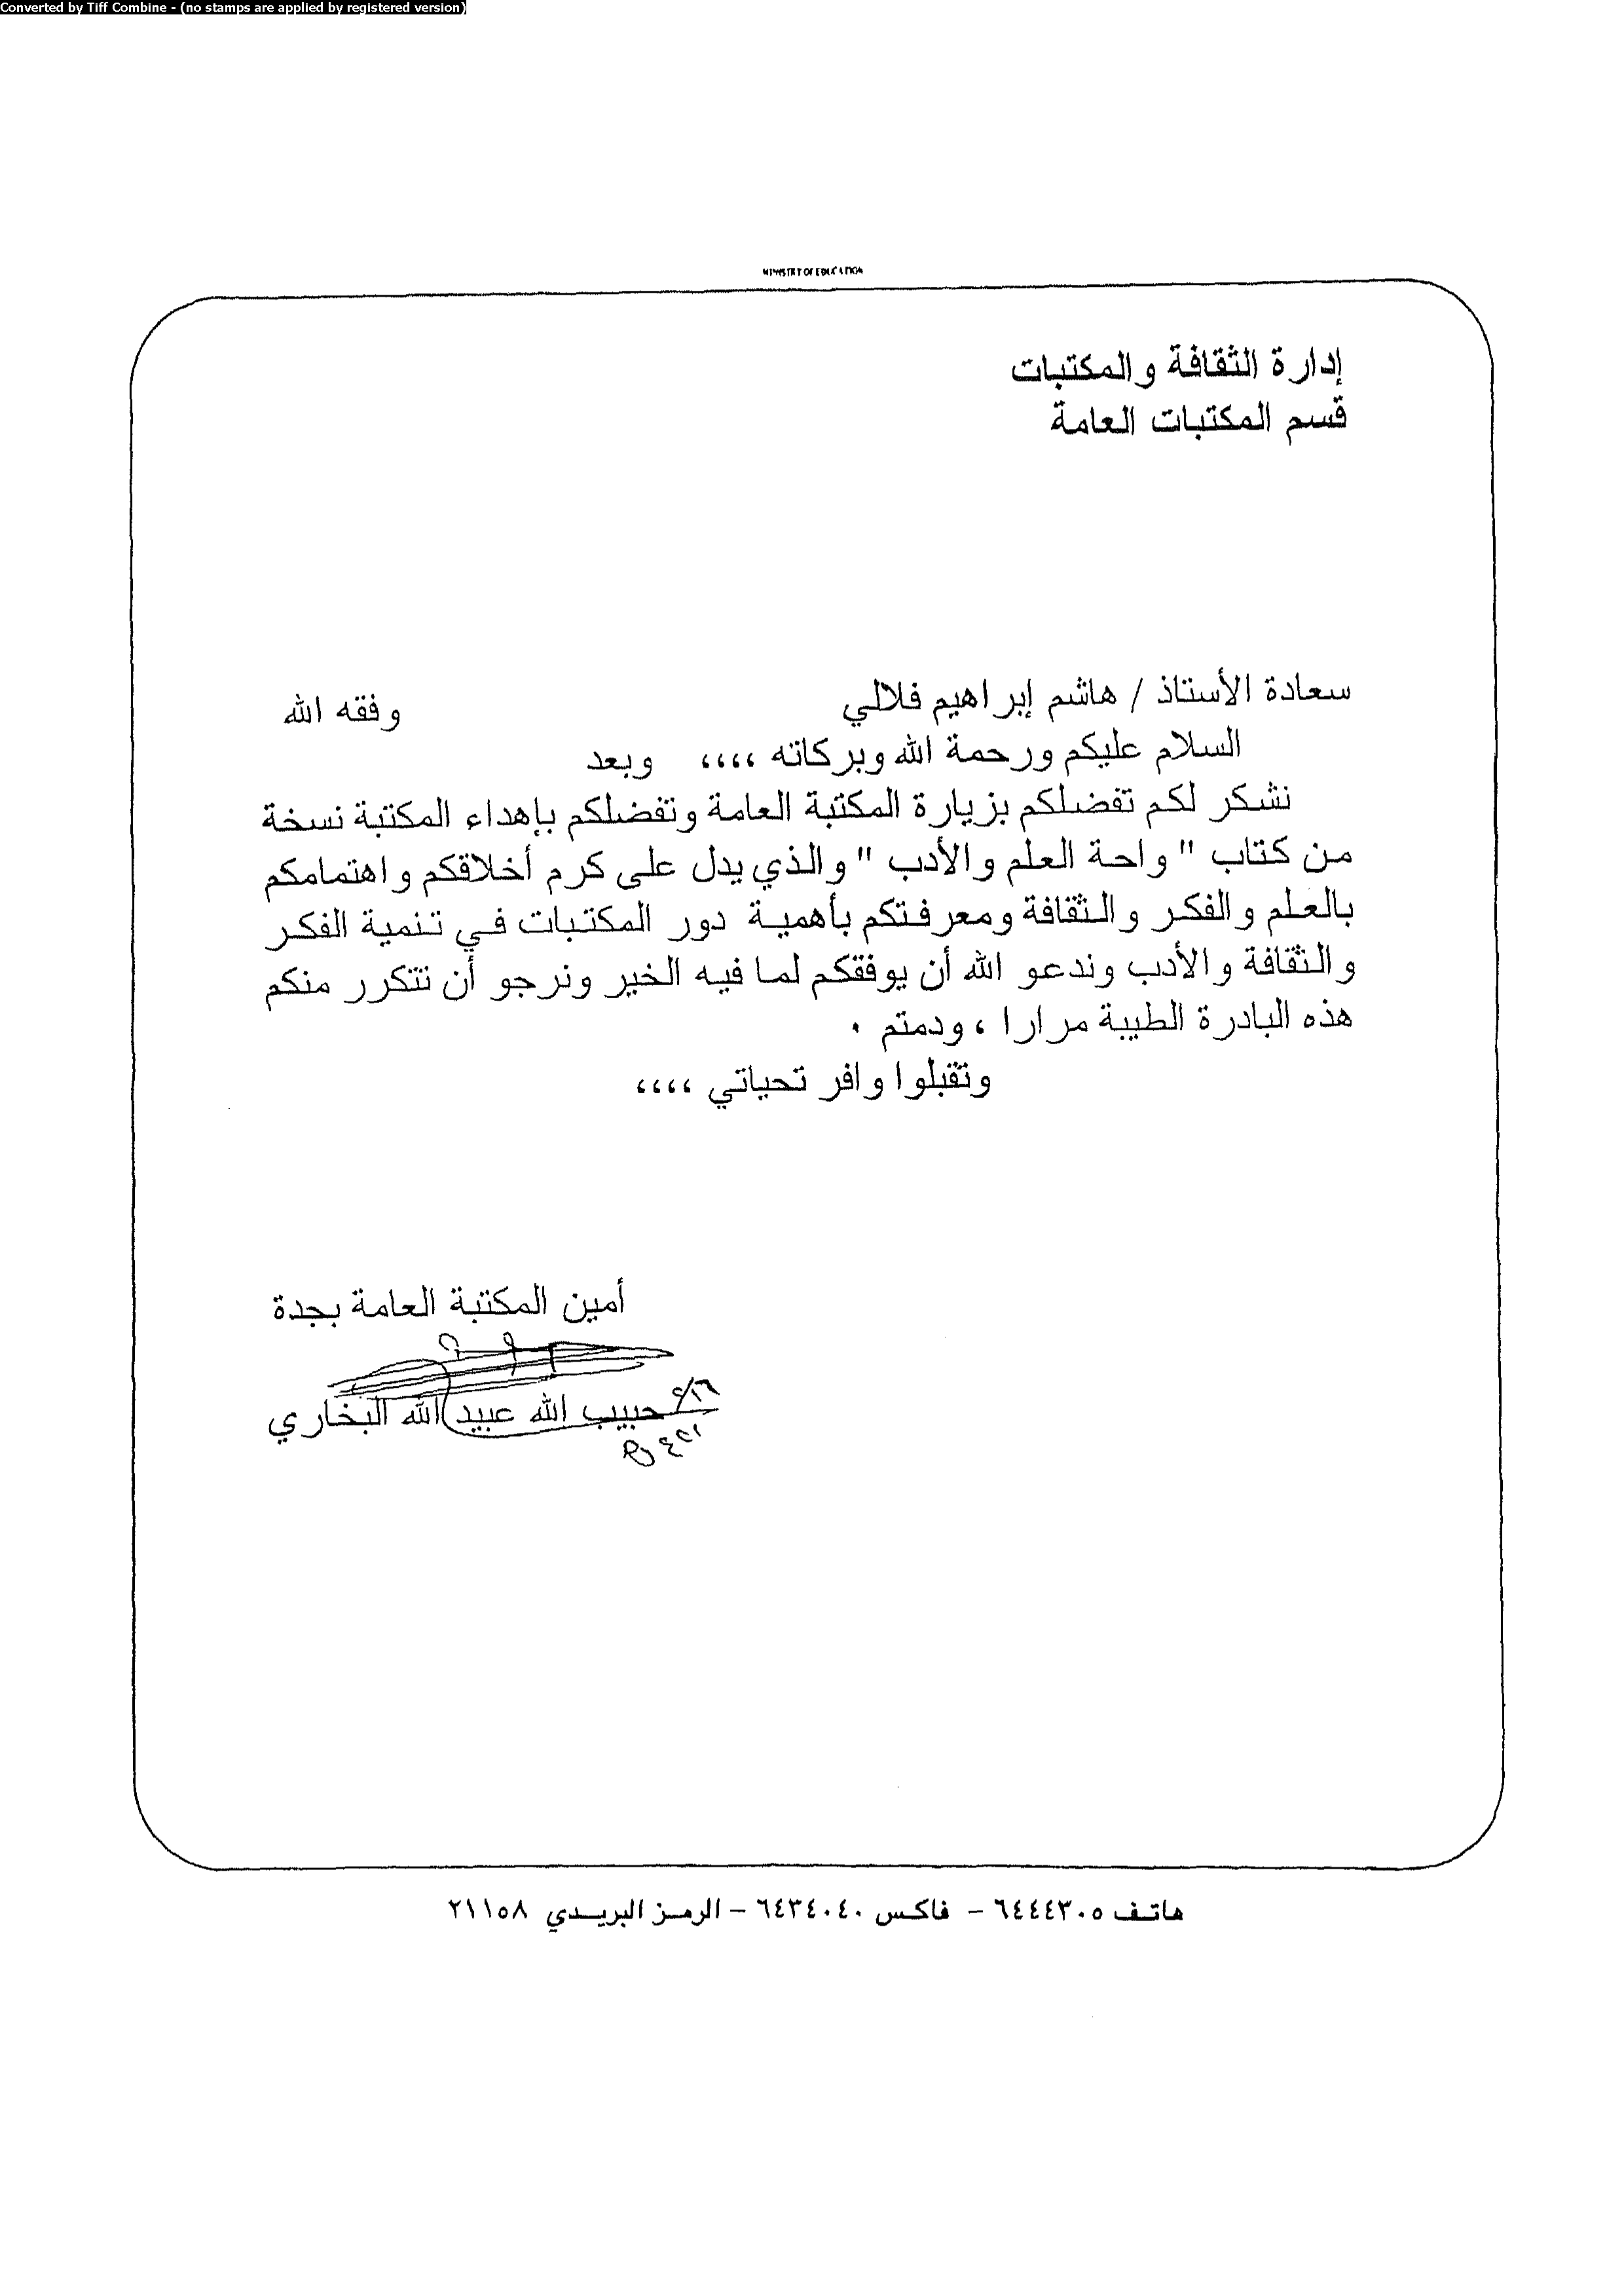 Converted by Tiff Combine - (no stamps are applied by registered version)
MINISTRY OF EDUCATION
إدارة الثقافة والمكتبات
قسم المكتبات العامة
سعادة الأستاذ / هاشم إبراهيم فلالي وفقه الله
السلام عليكم ورحمة الله وبركاته ،،،، وبعد
نشكر لكم تفضلكم بزيارة المكتبة العامة وتفضلكم بإهداء المكتبة نسخة
من كتاب " واحة العلم والأدب " والذي يدل على كرم أخلاقكم واهتمامكم
بالعلم والفكر والثقافة ومعرفتكم بأهمية دور المكتبات في تنمية الفكر
والثقافة والأدب وندعو الله أن يوفقكم لما فيه الخير ونرجو أن تتكرر منكم
هذه البادرة الطيبة مرارا ، ودمتم .
وتقبلوا وافر تحياتي ،،،،
أمين المكتبة العامة بجدة
حبيب الله عبيد الله البخاري
هاتف ٦٤٤٤٣٠٥ - فاكس ٦٤٣٤٠٤٠ - الرمز البريدي ٢١١٥٨